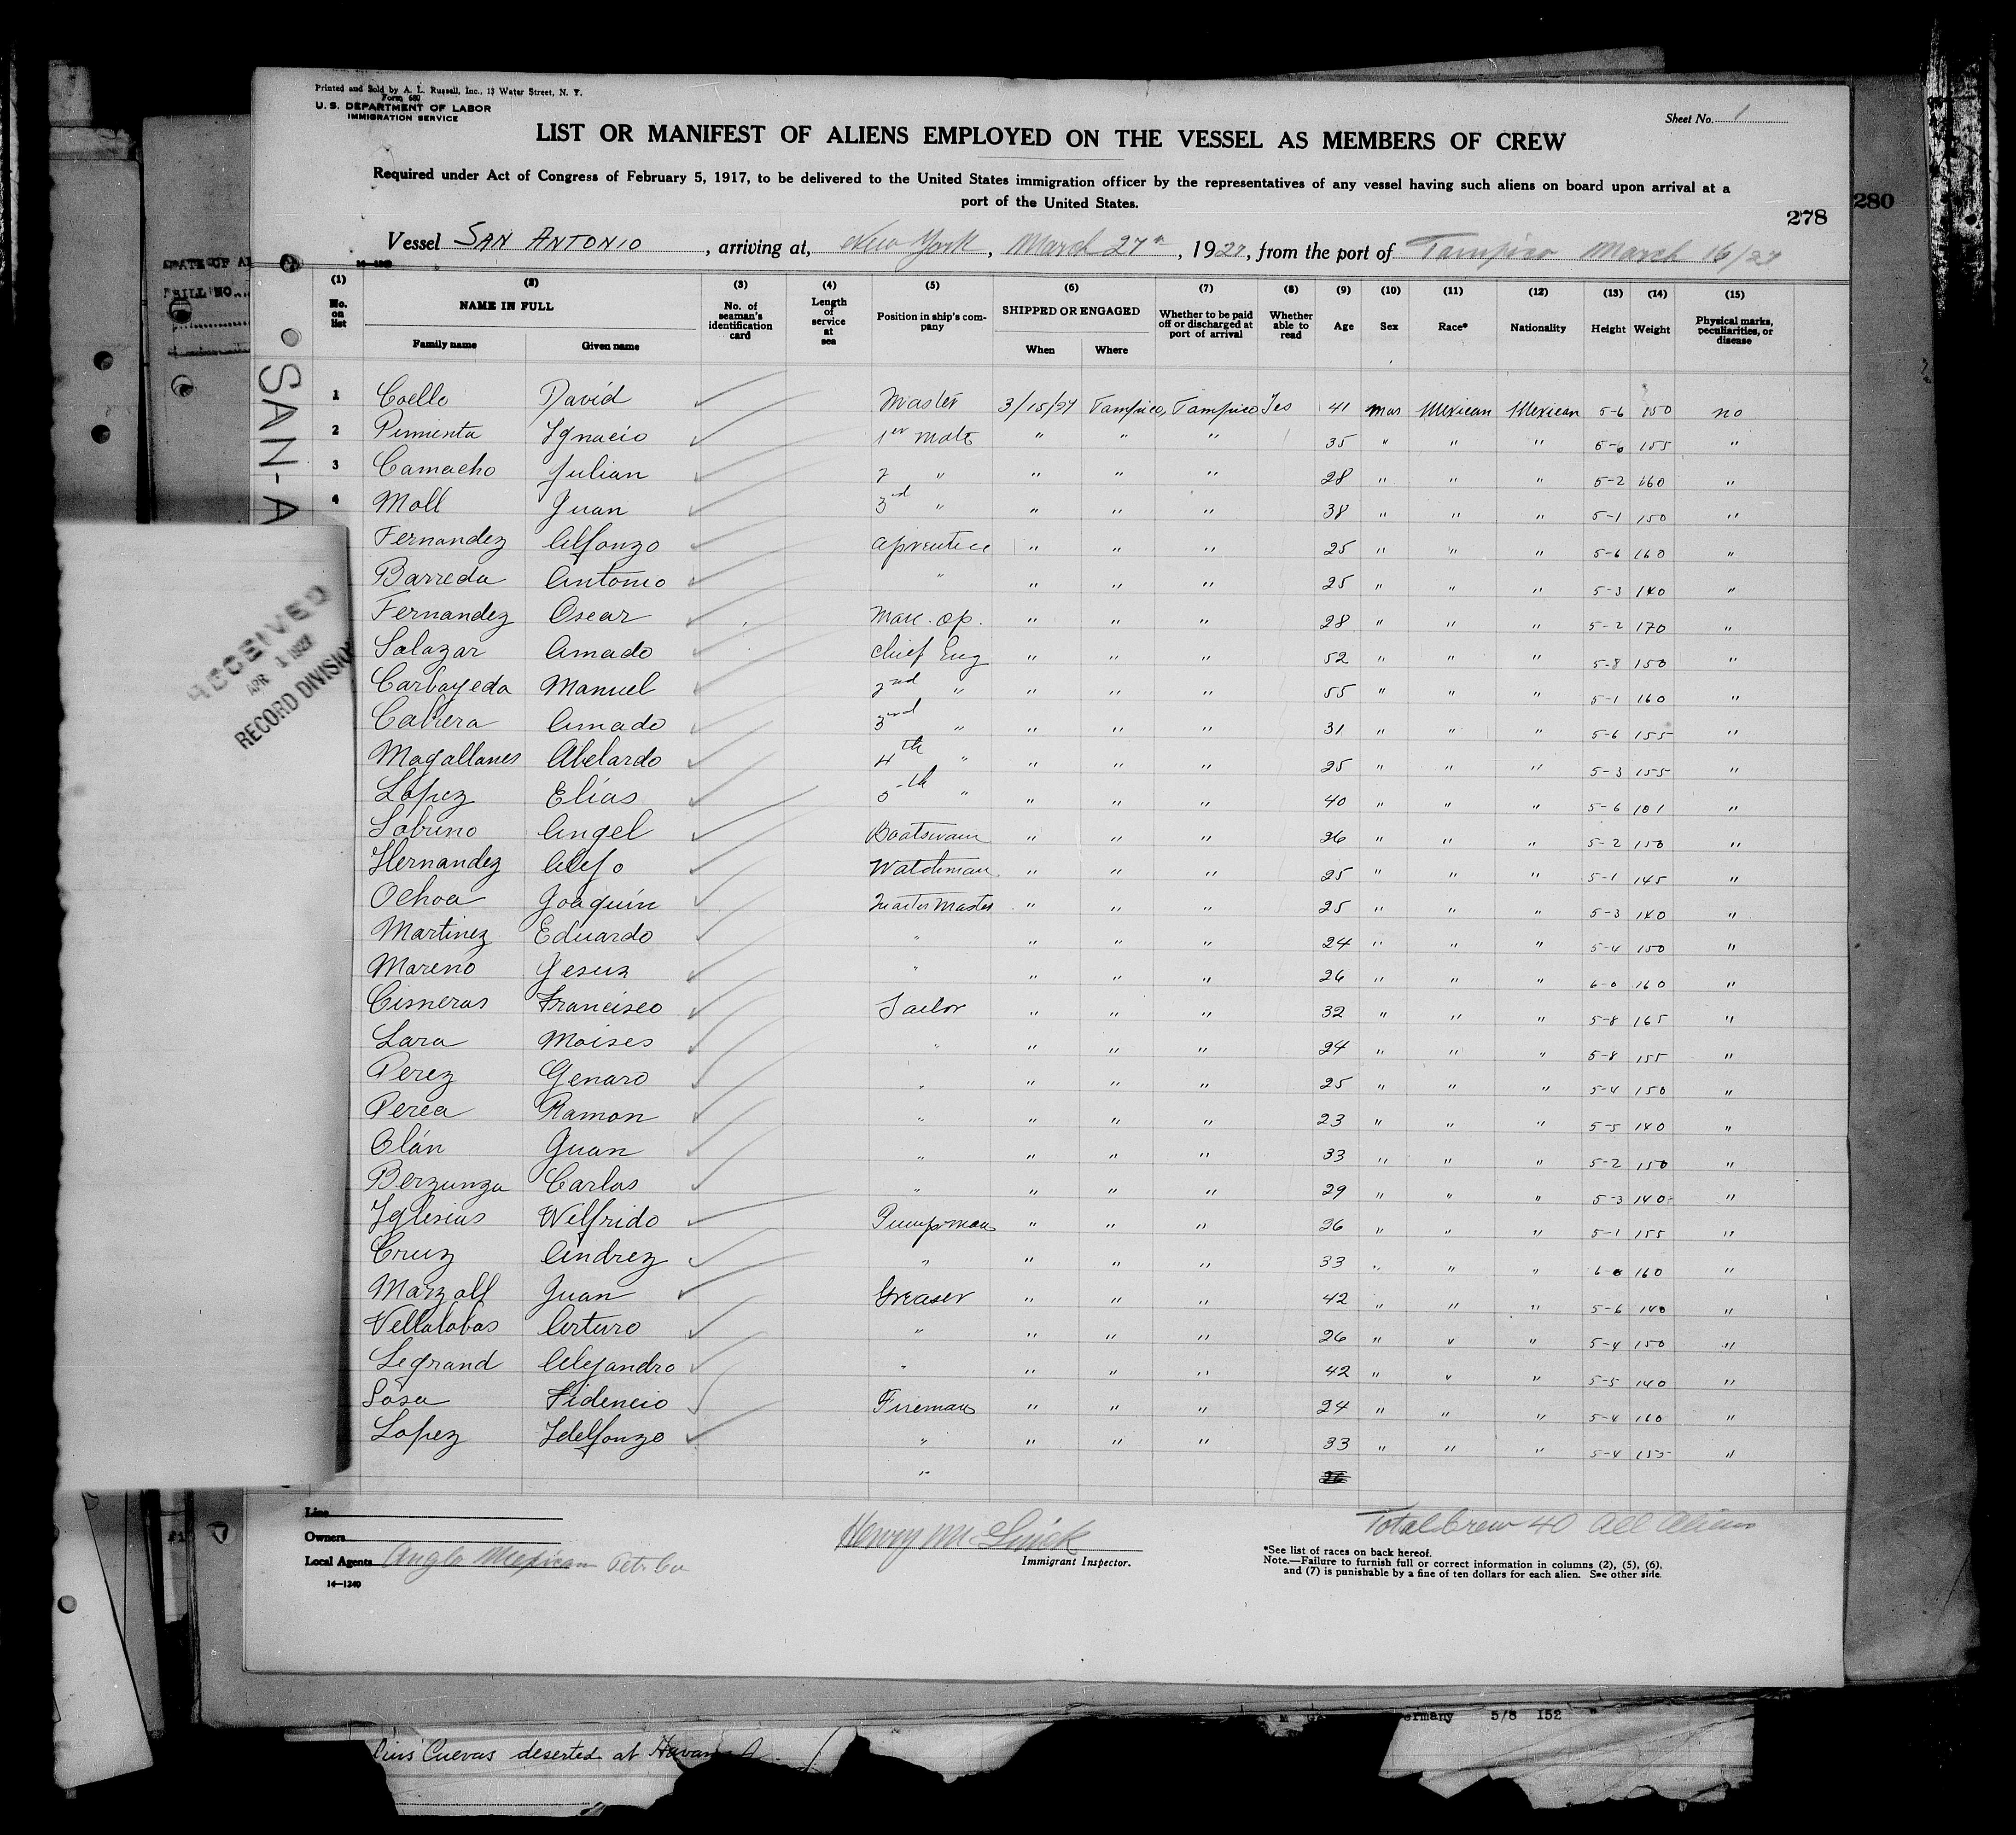 Printed and Sold by A. L. Russell, Inc., 13 Water Street, N. Y.
Form 680
U. S. DEPARTMENT OF LABOR
IMMIGRATION SERVICE
Sheet No. 1
LIST OR MANIFEST OF ALIENS EMPLOYED ON THE VESSEL AS MEMBERS OF CREW
Required under Act of Congress of February 5, 1917, to be delivered to the United States immigration officer by the representatives of any vessel having such aliens on board upon arrival at a
port of the United States.
278
280
Vessel SAN ANTONIO, arriving at, New York, March 27th, 1927, from the port of Tampico March 16/27
(1) (2) (3) (4) (5) (6) (7) (8) (9) (10) (11) (12) (13) (14) (15)
No. on list NAME IN FULL Family name Given name No. of seaman's identification card Length of service at sea Position in ship's company SHIPPED OR ENGAGED When Where Whether to be paid off or discharged at port of arrival Whether able to read Age Sex Race* Nationality Height Weight Physical marks, peculiarities, or disease
SAN-A
1 Coello David Master 3/15/27 Tampico, Tampico Yes 41 mas Mexican Mexican 5-6 150 no
2 Pimienta Ygnacio 1er mate " " " 35 " " " 5-6 155 "
3 Camacho Julian 2 " " " " 28 " " " 5-2 160 "
4 Moll Juan 3rd " " " " 38 " " " 5-1 150 "
Fernandez Alfonzo aprentice " " " 25 " " " 5-6 160 "
Barreda Antonio " " " " 25 " " " 5-3 140 "
Fernandez Oscar Marc. op. " " " 28 " " " 5-2 170 "
Salazar Amado Chief Eng " " " 52 " " " 5-8 150 "
Carbayeda Manuel 2nd " " " " 55 " " " 5-1 160 "
Cabrera Amado 3rd " " " " 31 " " " 5-6 155 "
Magallanes Abelardo 4th " " " " 25 " " " 5-3 155 "
Lopez Elías 5th " " " " 40 " " " 5-6 101 "
Sobrino Angel Boatswain " " " 26 " " " 5-2 150 "
Hernandez Alejo Watchman " " " 25 " " " 5-1 145 "
Ochoa Joaquín Quarter Master " " " 25 " " " 5-3 140 "
Martinez Eduardo " " " " 24 " " " 5-4 150 "
Moreno Jesus " " " " 26 " " " 6-0 160 "
Cisneros Francisco Sailor " " " 32 " " " 5-8 165 "
Lara Moises " " " " 24 " " " 5-8 155 "
Perez Genaro " " " " 25 " " " 5-4 150 "
Perea Ramon " " " " 23 " " " 5-5 140 "
Olán Juan " " " " 33 " " " 5-2 150 "
Berzunza Carlos " " " " 29 " " " 5-3 140 "
Yglesias Wilfrido Pumpman " " " 26 " " " 5-1 155 "
Cruz Andrez " " " " 33 " " " 6-0 160 "
Marzoll Juan Greaser " " " 42 " " " 5-6 140 "
Villalobos Arturo " " " " 26 " " " 5-4 150 "
Legrand Alejandro " " " " 42 " " " 5-5 140 "
Sosa Fidencio Fireman " " " 24 " " " 5-4 160 "
Lopez Ildelfonzo " " " " 33 " " " 5-4 155 "
"
RECEIVED
APR 1 1927
RECORD DIVISION
Line
Owners
Local Agents Anglo Mexican Petr. Co
14—1240
Immigrant Inspector.
Total Crew 40 All Aliens
*See list of races on back hereof.
Note.—Failure to furnish full or correct information in columns (2), (5), (6),
and (7) is punishable by a fine of ten dollars for each alien. See other side.
ermany 5/8 152 "
Cuevas deserted at Havana